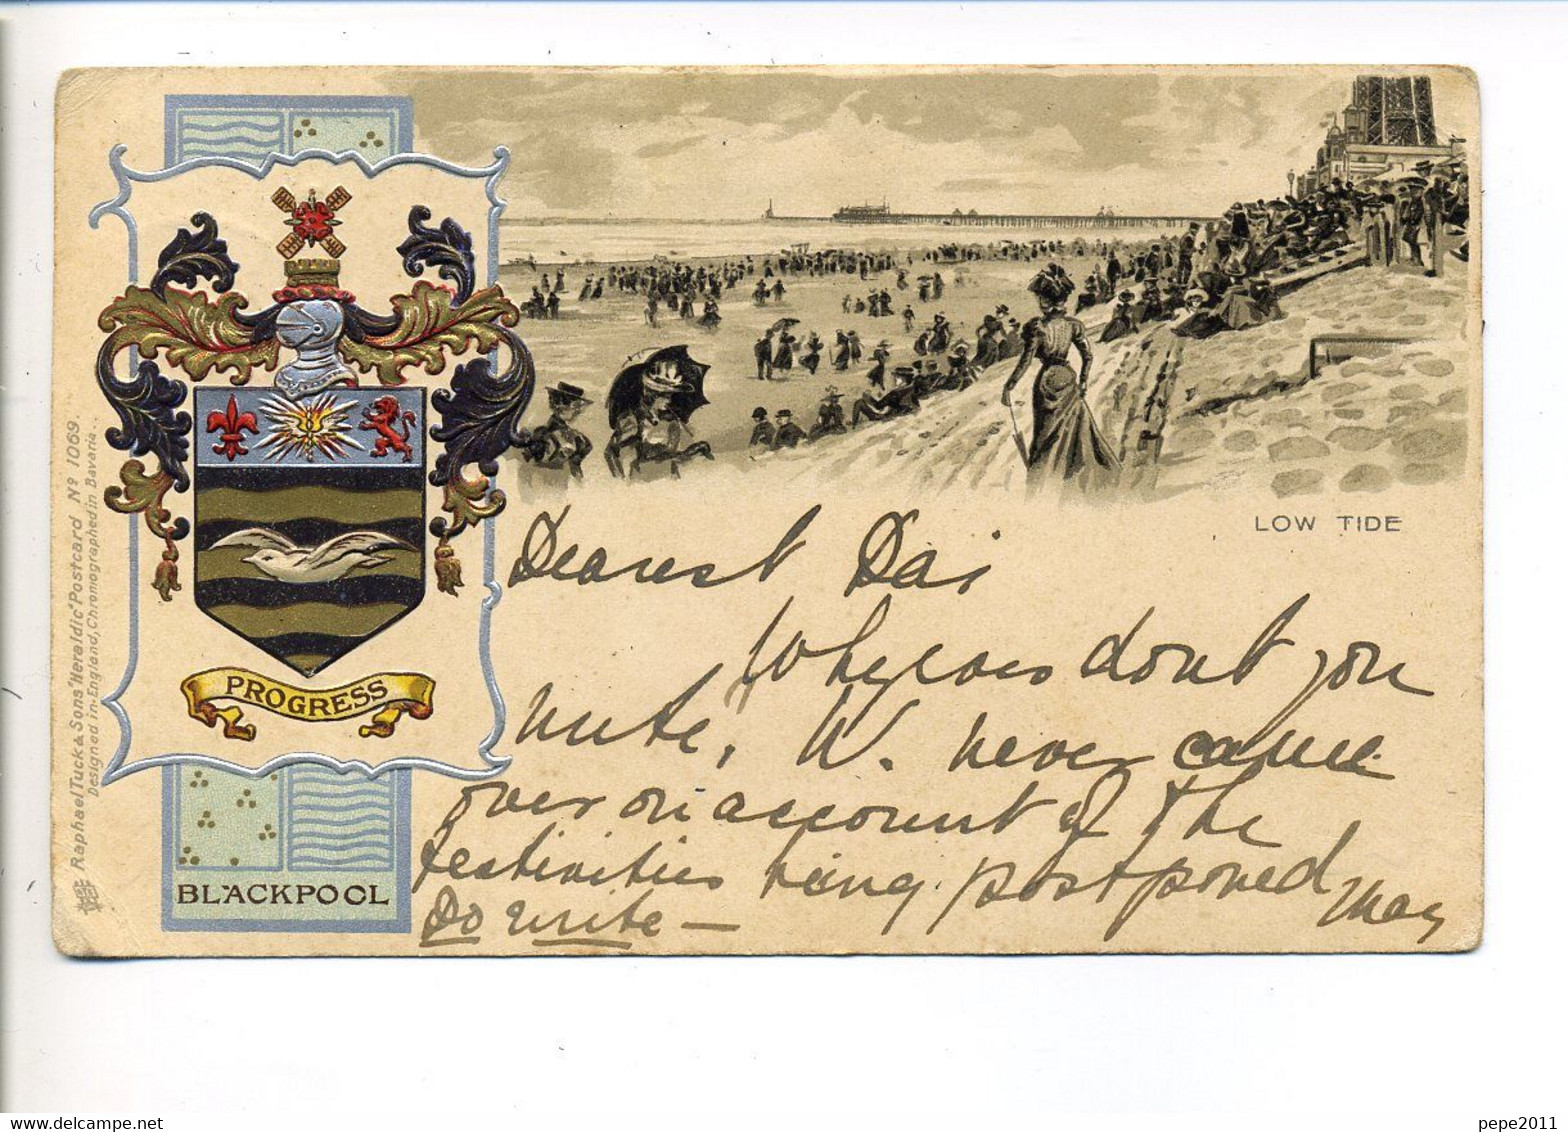 Raphael Tuck & Sons "Heraldic" Postcard Nº 1069.
Designed in England, Chromographed in Bavaria.
PROGRESS
BLACKPOOL
LOW TIDE
Dearest Dai
dont you
write. W. never came
over on account of the
festivities being postponed
Do write — May
pepe2011